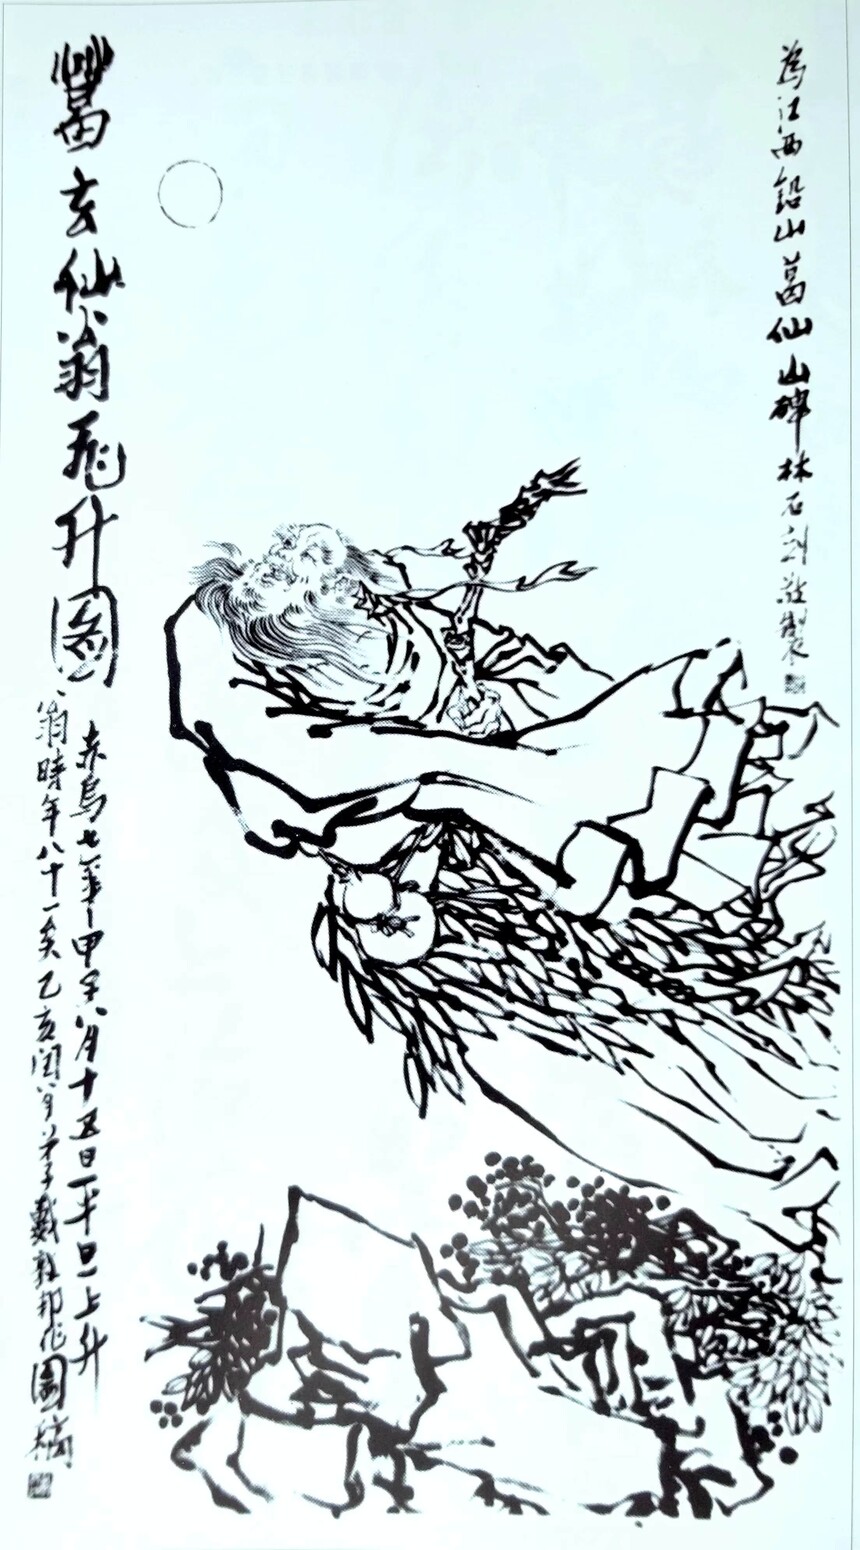 為江西鉛山葛仙山碑林石刻敬製
葛玄仙翁飛升圖
赤烏七年甲子八月十五日平旦上升
翁時年八十一矣乙亥閏八月弟子戴敦邦作圖稿